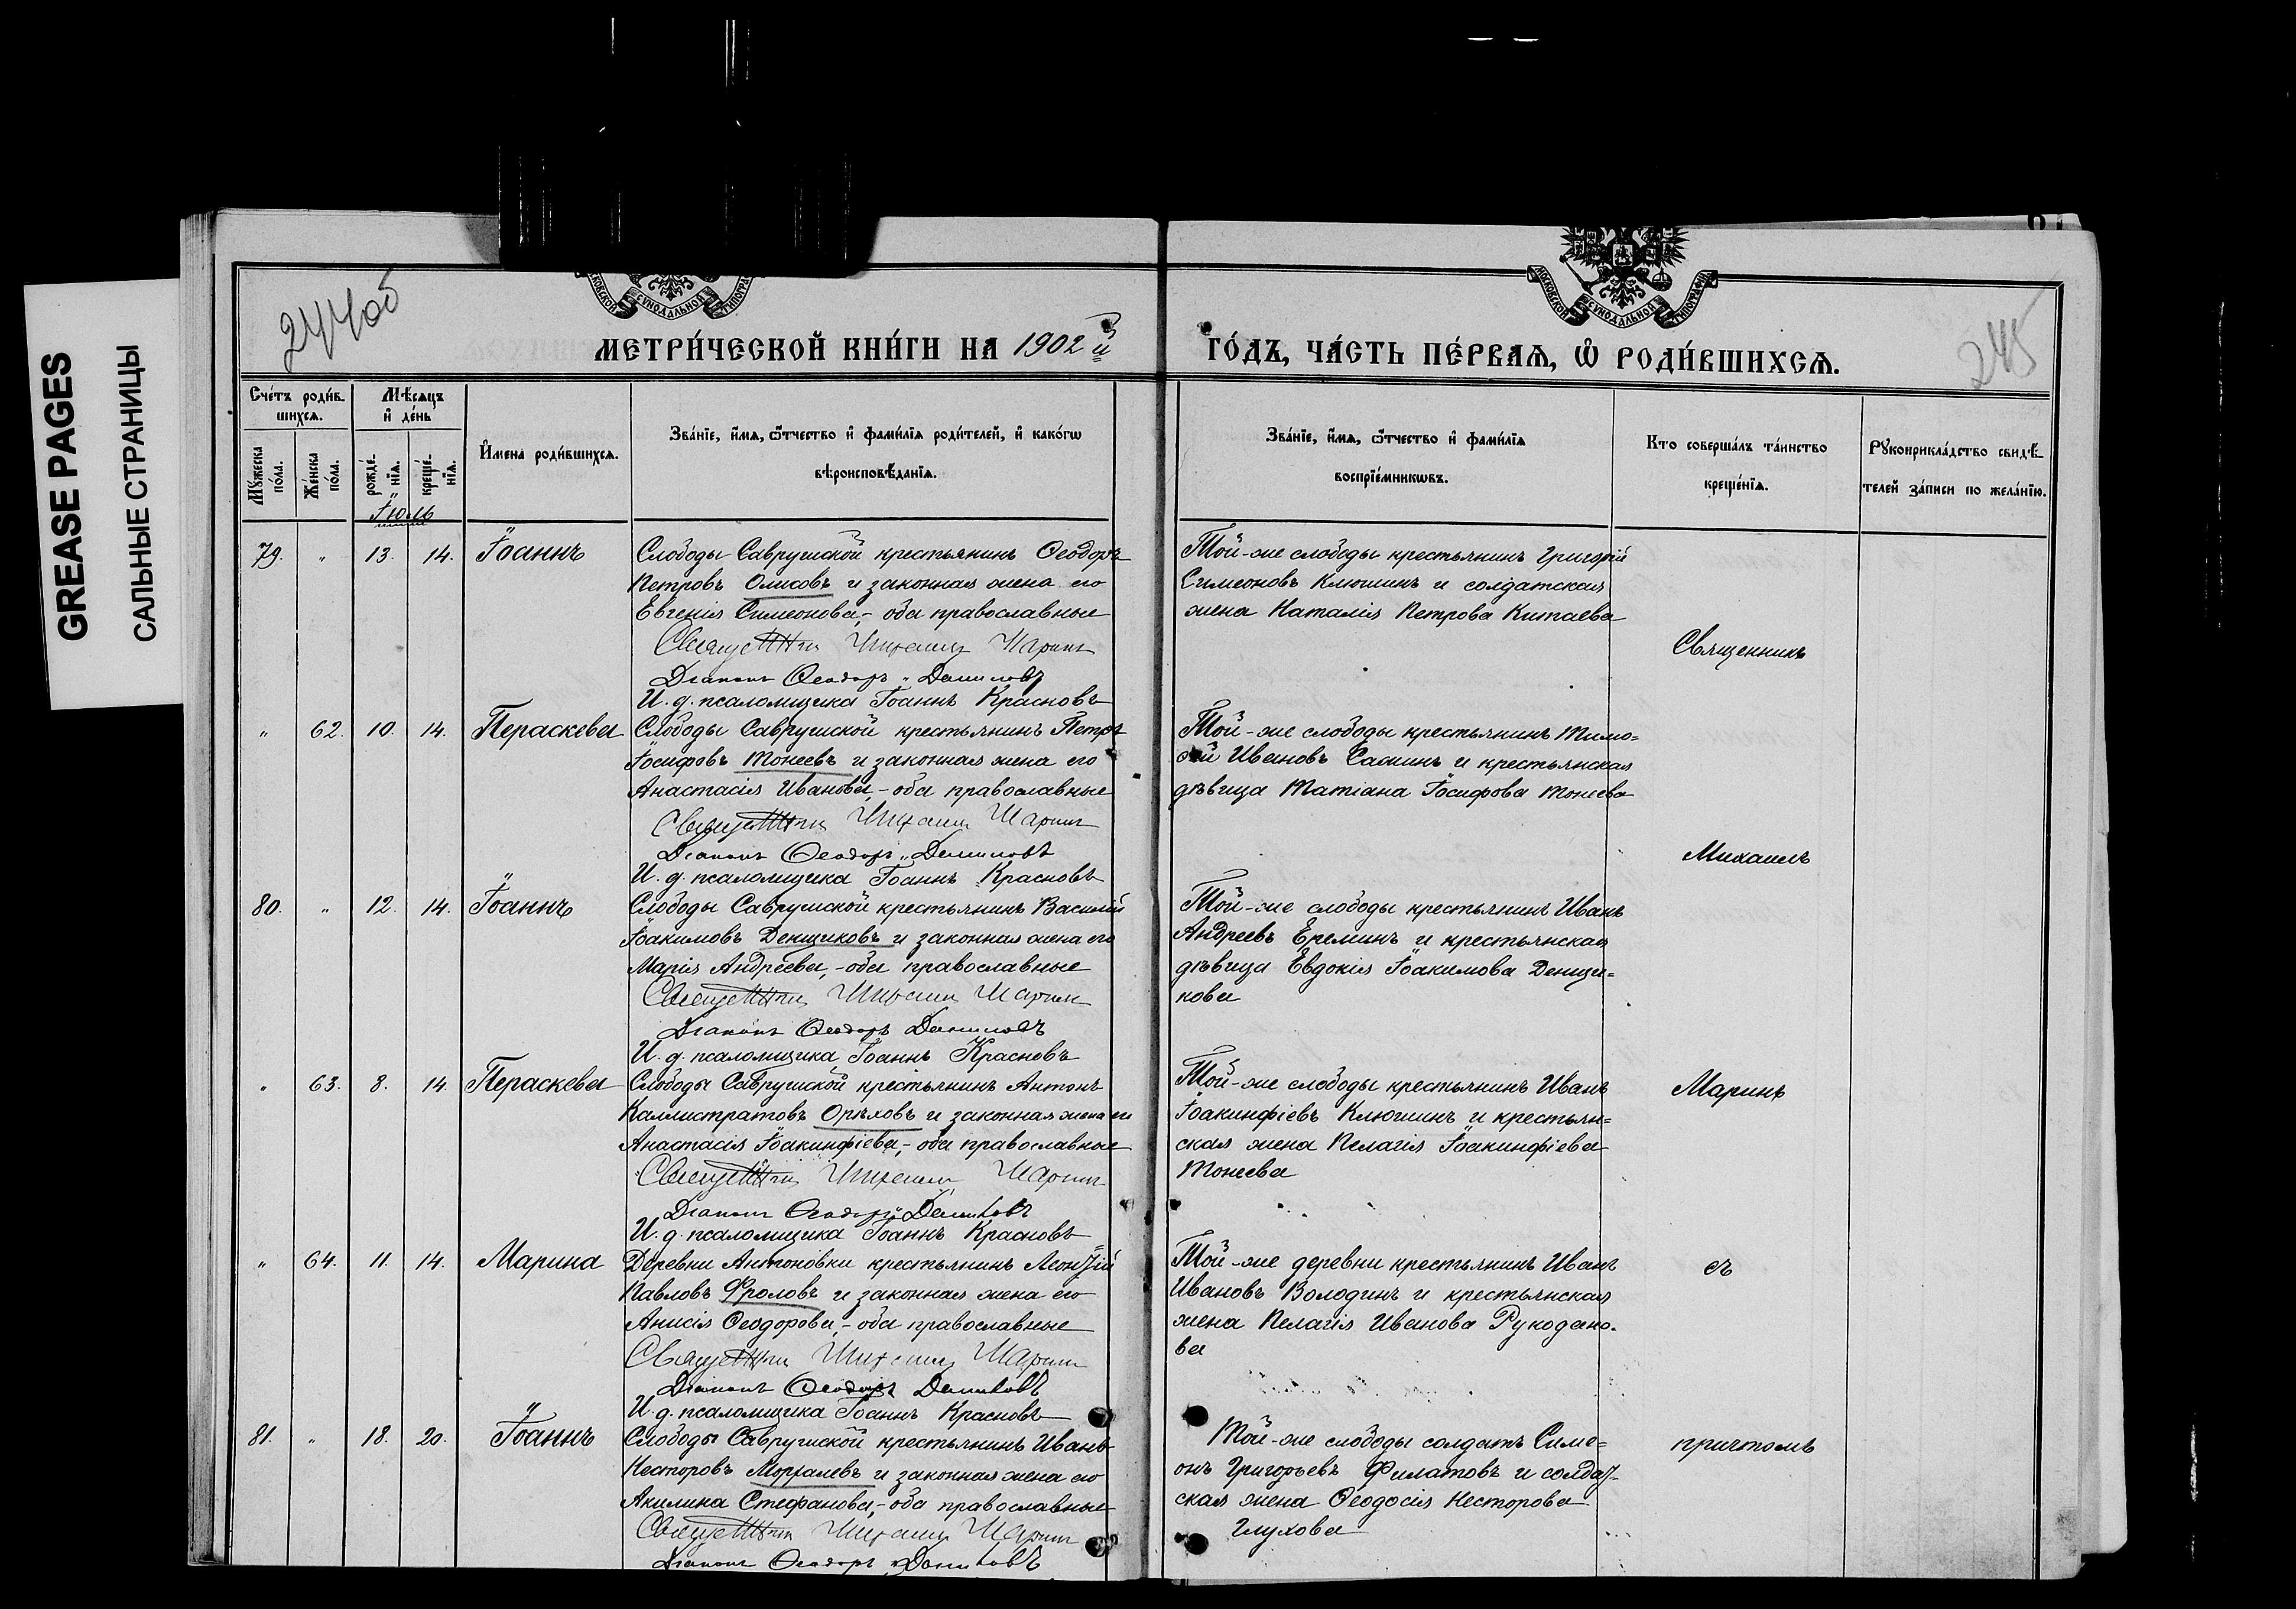 GREASE PAGES
САЛЬНЫЕ СТРАНИЦЫ
244об
245
МОСКОВСКОЙ СУНОДАЛЬНОЙ ТИПОГРАФІИ
МЕТРИ́ЧЕСКОЙ КНИ́ГИ НА 1902й ГО́ДЪ, ЧА́СТЬ ПЕ́РВАЯ, Ѡ РОДИ́ВШИХСЯ.
Сче́тъ роди́в-
шихся.
Мꙋ́жеска по́ла.
Же́нска по́ла.
Мѣ́сяцъ
и де́нь
рожде́-
нїя.
креще́-
нїя.
И҆мена роди́вшихся.
Зва́нїе, и҆́мя, ѻ҆́тчество и҆ фами́лїя роди́телей, и҆ како́гѡ
вѣроисповѣ́данїя.
Зва́нїе, и҆́мя, ѻ҆́тчество и҆ фами́лїя
воспрїе́мникѡвъ.
Кто соверша́лъ та́инство
креще́нїя.
Рꙋкоприкла́дство свидѣ́-
телей за́писи по жела́нїю.
Іюль
79. " 13. 14. Іоаннъ
Слободы Саврушской крестьянинъ Ѳеодоръ
Петровъ Олисовъ и законная жена его
Евгенія Симеонова,- оба православные
Священникъ Михаилъ Маринъ
Діаконъ Ѳеодоръ Даниловъ
И. д. псаломщика Іоаннъ Красновъ
Той-же слободы крестьянинъ Григорій
Симеоновъ Клюшинъ и солдатская
жена Наталія Петрова Китаева
Священникъ
" 62. 10. 14. Параскева
Слободы Саврушской крестьянинъ Петръ
Іосифовъ Монеевъ и законная жена его
Анастасія Иванова,- оба православные
Священникъ Михаилъ Маринъ
Діаконъ Ѳеодоръ Даниловъ
И. д. псаломщика Іоаннъ Красновъ
Той-же слободы крестьянинъ Тимо=
ѳей Ивановъ и крестьянская
дѣвица Татіана Іосифова Монеева
Михаилъ
80. " 12. 14. Іоаннъ
Слободы Саврушской крестьянинъ Василій
Іоакимовъ Денщиковъ и законная жена его
Марія Андреева,- оба православные
Священникъ Михаилъ Маринъ
Діаконъ Ѳеодоръ Даниловъ
И. д. псаломщика Іоаннъ Красновъ
Той-же слободы крестьянинъ Иванъ
Андреевъ Ереминъ и крестьянская
дѣвица Евдокія Іоакимова Денщи=
кова
" 63. 8. 14. Параскева
Слободы Саврушской крестьянинъ Антонъ
Каллистратовъ Орѣховъ и законная жена его
Анастасія Іоакинфіева,- оба православные
Священникъ Михаилъ Маринъ
Діаконъ Ѳеодоръ Даниловъ
И. д. псаломщика Іоаннъ Красновъ
Той-же слободы крестьянинъ Иванъ
Іоакинфіевъ Клюшинъ и крестьян=
ская жена Пелагія Іоакинфіева
Монеева
Маринъ
" 64. 11. 14. Марина
Деревни Антоновки крестьянинъ Леонтій
Павловъ Фроловъ и законная жена его
Анисія Ѳеодорова,- оба православные
Священникъ Михаилъ Маринъ
Діаконъ Ѳеодоръ Даниловъ
И. д. псаломщика Іоаннъ Красновъ
Той-же деревни крестьянинъ Иванъ
Ивановъ Володинъ и крестьянская
жена Пелагія Иванова Рукодано-
ва
съ
81. " 18. 20. Іоаннъ
Слободы Саврушской крестьянинъ Иванъ
Несторовъ и законная жена его
Акилина Стефанова,- оба православные
Священникъ Михаилъ Маринъ
Діаконъ Ѳеодоръ Даниловъ
Той-же слободы солдатъ Симе=
онъ Григорьевъ Филатовъ и солдат-
ская жена Ѳеодосія Несторова
Глухова
причтомъ